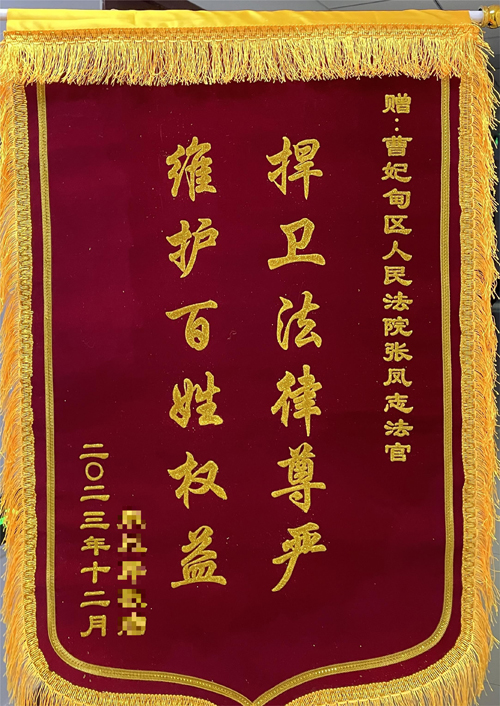 赠:曹妃甸区人民法院张凤志法官
捍卫法律尊严
维护百姓权益
二〇二三年十二月